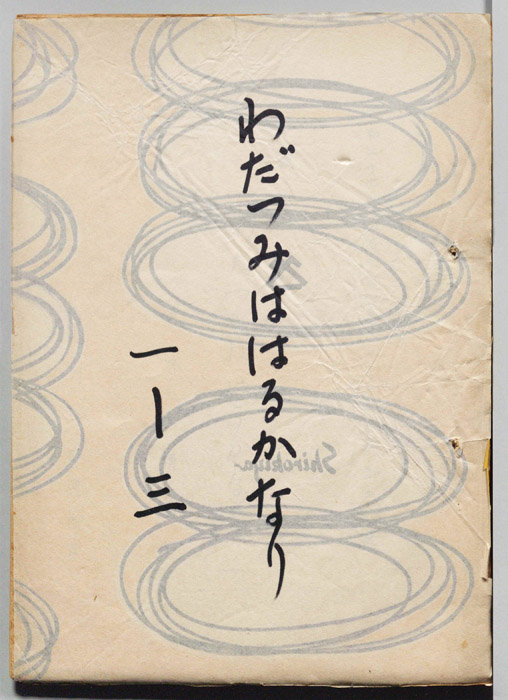 わだつみははるかなり
一ー三
Shirokiya